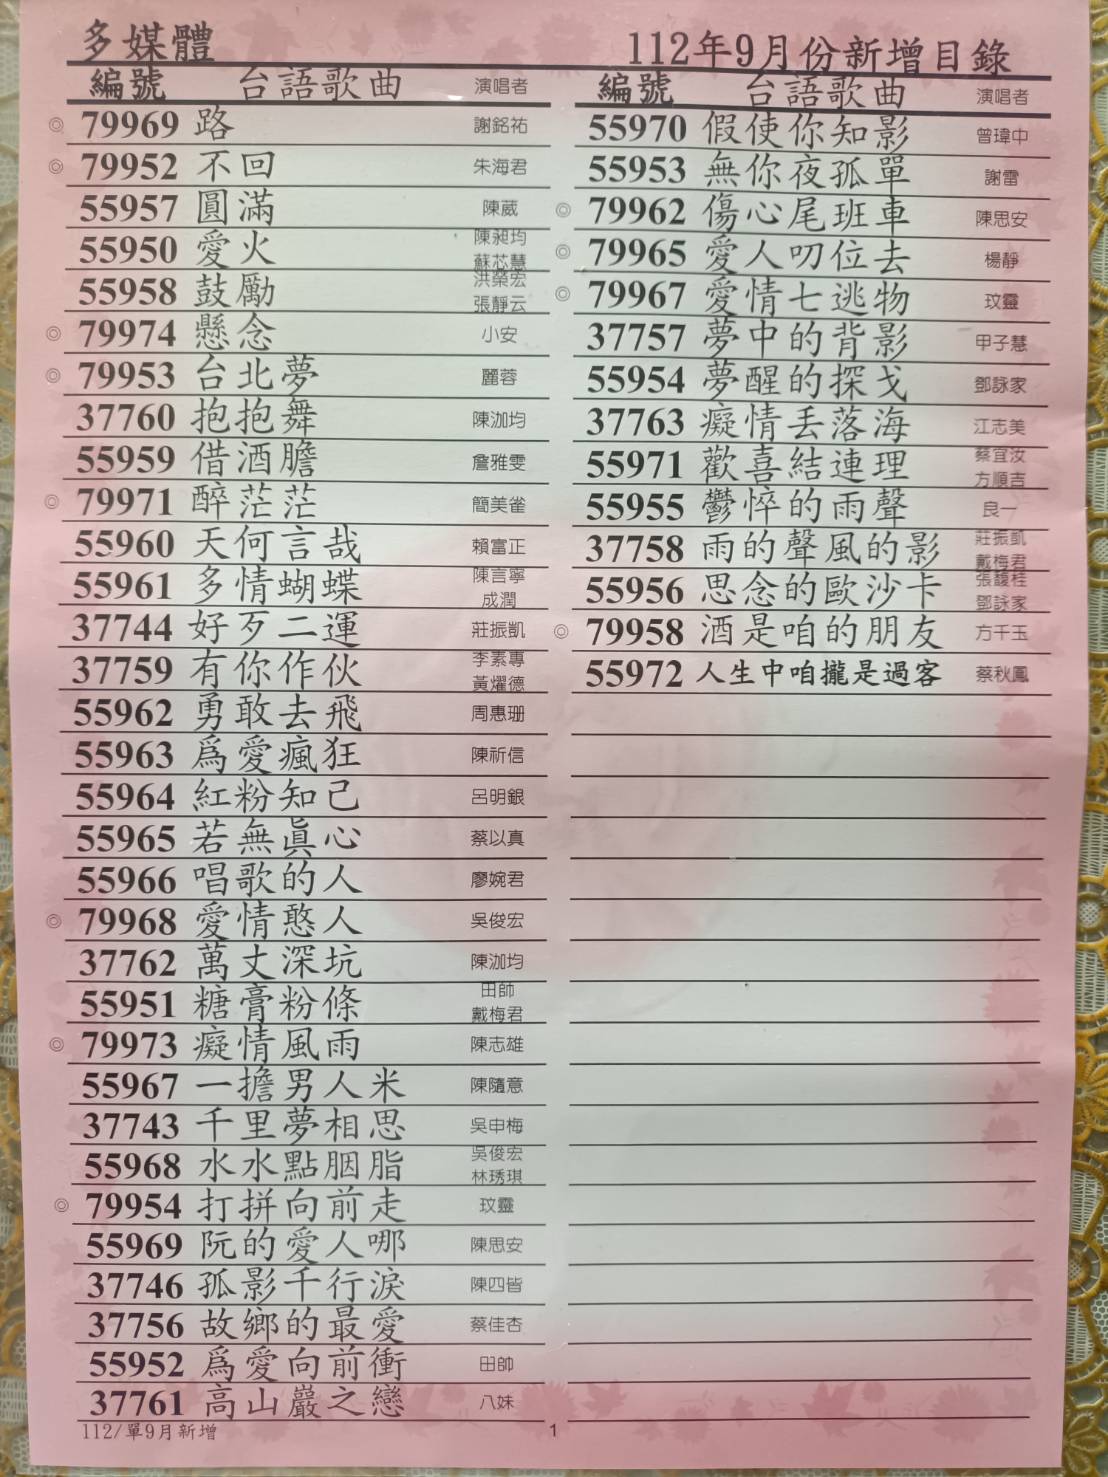 多媒體
112年9月份新增目錄
編號 台語歌曲 演唱者
◎ 79969 路 謝銘祐
◎ 79952 不回 朱海君
55957 圓滿 陳葳
55950 愛火 陳昶均 蘇芯慧
55958 鼓勵 洪榮宏 張靜云
◎ 79974 懸念 小安
◎ 79953 台北夢 麗蓉
37760 抱抱舞 陳泇均
55959 借酒膽 詹雅雯
◎ 79971 醉茫茫 簡美雀
55960 天何言哉 賴富正
55961 多情蝴蝶 陳言寧 成潤
37744 好歹二運 莊振凱
37759 有你作伙 李素專 黃燿德
55962 勇敢去飛 周惠珊
55963 為愛瘋狂 陳祈信
55964 紅粉知己 呂明銀
55965 若無真心 蔡以真
55966 唱歌的人 廖婉君
◎ 79968 愛情憨人 吳俊宏
37762 萬丈深坑 陳泇均
55951 糖膏粉條 田帥 戴梅君
◎ 79973 癡情風雨 陳志雄
55967 一擔男人米 陳隨意
37743 千里夢相思 吳申梅
55968 水水點胭脂 吳俊宏 林琇琪
◎ 79954 打拼向前走 玟靈
55969 阮的愛人哪 陳思安
37746 孤影千行淚 陳四皆
37756 故鄉的最愛 蔡佳杏
55952 為愛向前衝 田帥
37761 高山巖之戀 八妹
編號 台語歌曲 演唱者
55970 假使你知影 曾瑋中
55953 無你夜孤單 謝雷
◎ 79962 傷心尾班車 陳思安
◎ 79965 愛人叨位去 楊靜
◎ 79967 愛情七逃物 玟靈
37757 夢中的背影 甲子慧
55954 夢醒的探戈 鄧詠家
37763 癡情丟落海 江志美
55971 歡喜結連理 蔡宜汝 方順吉
55955 鬱悴的雨聲 良一
37758 雨的聲風的影 莊振凱 戴梅君
55956 思念的歐沙卡 張馥桂 鄧詠家
◎ 79958 酒是咱的朋友 方千玉
55972 人生中咱攏是過客 蔡秋鳳
112/單9月新增
1